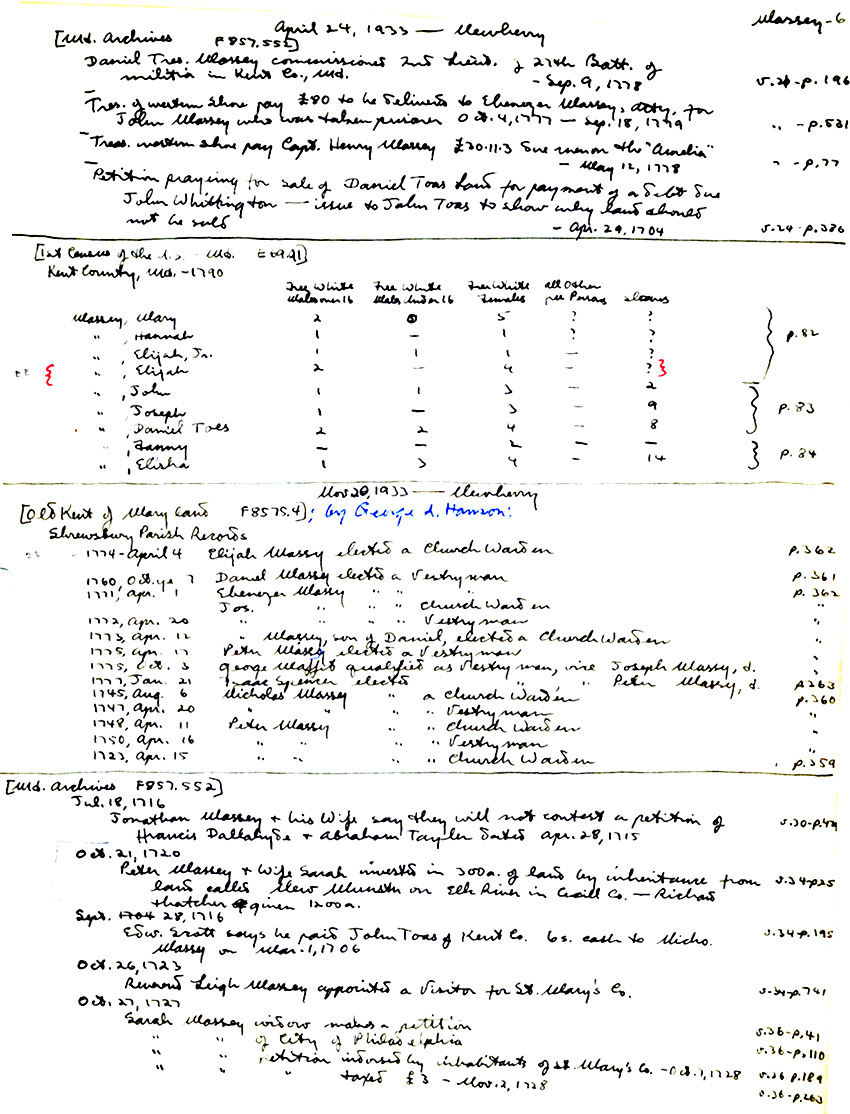 April 24, 1933 — Newberry
Massey-6
[Md. Archives F857.552]
Daniel Tres. Massey commissioned 2nd Lieut. of 27th Batt. of
militia in Kent Co., Md. - Sep. 9, 1778 v.21-p.196
Tres. of western shore pay £80 to be delivered to Ebenezer Massey, atty. for
John Massey who was taken prisoner Oct. 4, 1777 — Sep. 18, 1779 " -p.531
Treas. western shore pay Capt. Henry Massey £30.11.3 due men on the "Amelia"
- May 12, 1778 " -p.77
Petition praying for sale of Daniel Toas land for payment of a debt due
John Whittington — issue to John Toas to show why land should
not be sold - Apr. 29, 1704 v.24-p.386
[1st Census of the U.S. - Md. E69.91]
Kent Country, Md. -1790
Free White Males over 16
Free White Males Under 16
Free White Females
All Other Free Persons
Slaves
Massey, Mary 2 0 5 ? ?
" , Hannah 1 — 1 ? ? p.82
" , Elijah, Jr. 1 1 1 — ?
{ " , Elijah 2 — 4 — ? }
" , John 1 1 3 — 2
" , Joseph 1 — 3 — 9 p.83
" , Daniel Toes 2 2 4 — 8
" , Fanny — — 2 — —
" , Elisha 1 3 4 - 14 p.84
Nov 20, 1933 — Newberry
[Old Kent of Mary land F8575.4]; by George A. Hanson:
Shrewsbury Parish Records
- 1774-April 4 Elijah Massy elected a Church Warden p.362
1760, Oct. ye 7 Daniel Massey elected a Vestryman p.361
1771, Apr. 1 Ebenezer Massy " " " p.362
Jos. " " " Church Warden "
1772, Apr. 20 " " " " Vestryman "
1773, Apr. 12 " Massey, son of Daniel, elected a Church Warden "
1775, Apr. 17 Peter Massy elected a Vestryman "
1775, Oct. 3 George Maffit qualified as Vestryman, vice Joseph Massy, d. "
1777, Jan. 21 Isaac Spencer elected " " Peter Massey, d. p363
1745, Aug. 6 Nicholas Massey " a Church Warden p.360
1747, Apr. 20 " " " " Vestryman "
1748, Apr. 11 Peter Massey " " Church Warden "
1750, Apr. 16 " " " " Vestryman "
1723, Apr. 15 " " " " Church Warden p.359
[Md. Archives F857.552]
Jul. 18, 1716
Jonathan Massey + his Wife say they will not contest a petition of
Francis Dallahyde + Abraham Tayler dated Apr. 28, 1715 v.30-p.
Oct. 21, 1720
Peter Massey + Wife Sarah invested in 300a. of land by inheritance from
land called New Munster on Elk River in Cecill Co. — Richard
Thatcher given 1200a. v.34-p25
Sept. 1704 28, 1716
Edw. Scott says he paid John Toas of Kent Co. 6s. cash to Nicho.
Massey on Mar. 1, 1706 v.34-p.195
Oct. 26, 1723
Reverend Leigh Massey appointed a Visitor for St. Mary's Co. v-34-p.741
Oct. 27, 1727
Sarah Massey widow makes a petition v.36-p.41
" " of City of Philadelphia v.36-p.110
" " petition indorsed by inhabitants of St. Mary's Co. -Oct. 7, 1728 v.36 p.189
" " " taxed £3 - Nov. 2, 1728 v.36-p.263